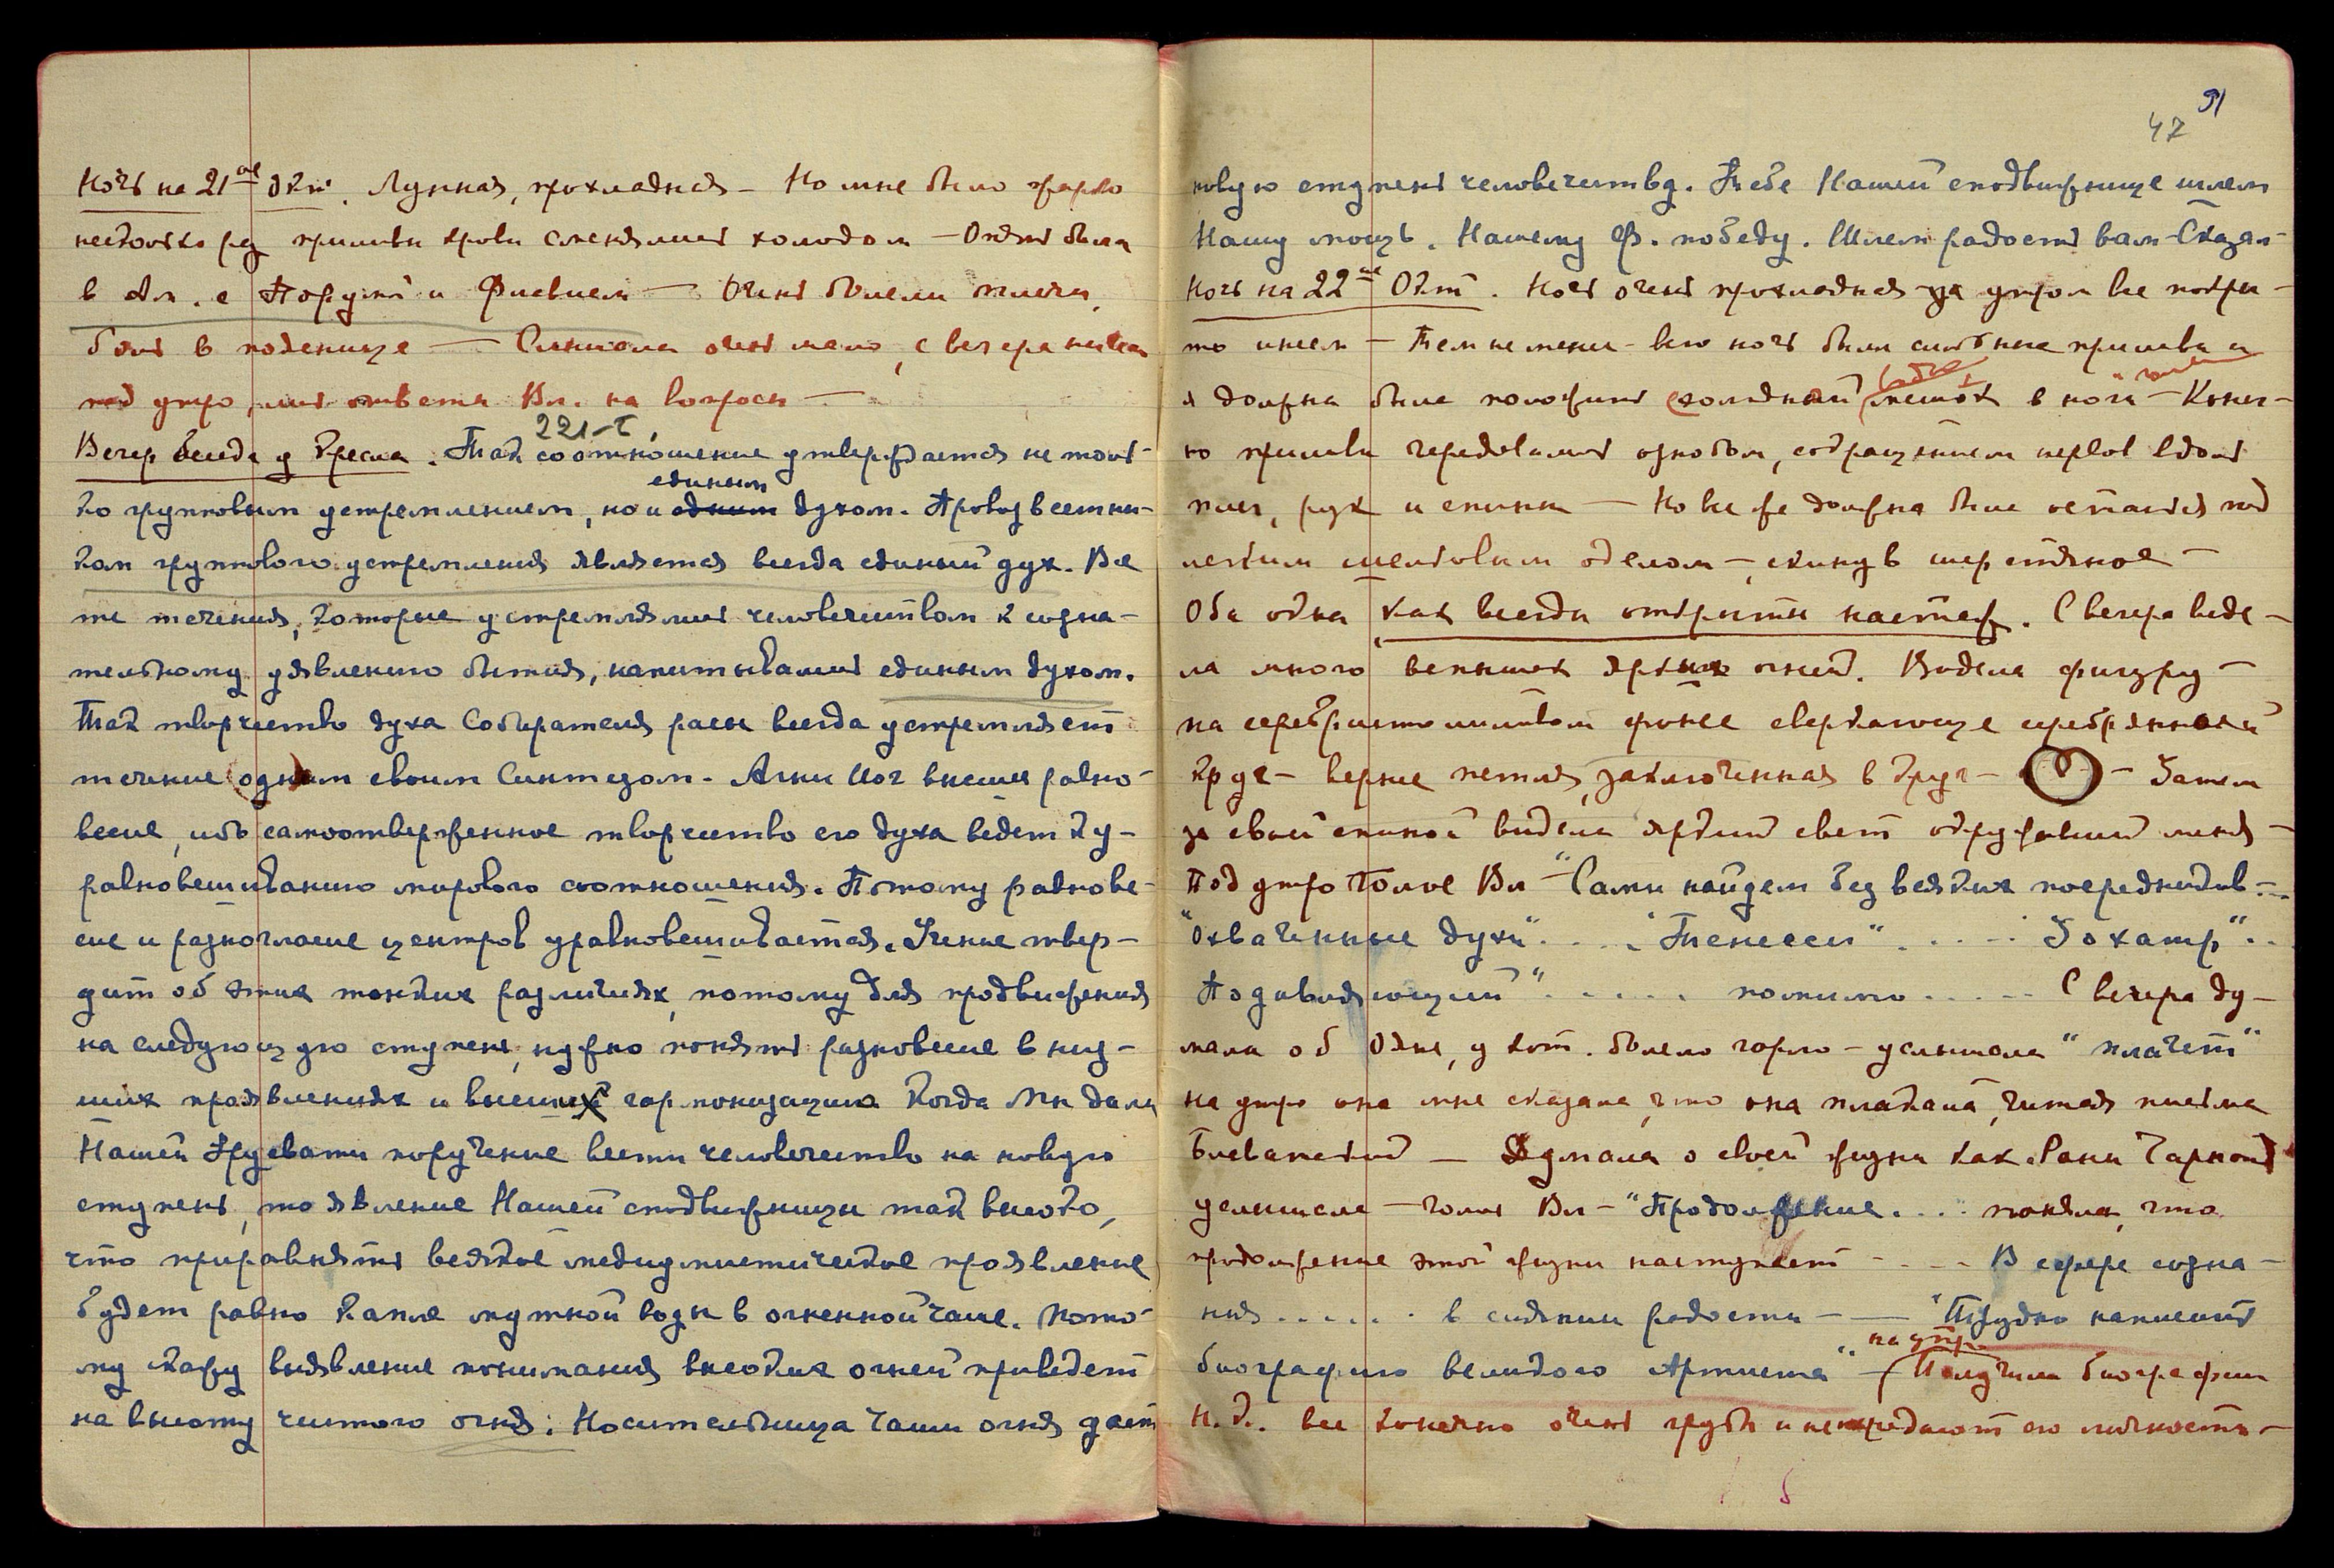 Ночь на 21ое Окт. Лунная, прохладная – Но мне было жарко
несколько раз приливы крови сменялись холодом – Опять была
в Ам. с Порумой и Фиевием – Очень болели плечи,
боль в пояснице – Слышала очень мало, с вечера
под утро, лишь ответы Вл. на вопросы –
221-Т.
Вечер беседа у Кресла. Так соотношение утверждается не толь-
ко групповым устремлением, но и одним единым духом. Провозвестни-
ком группового устремления является всегда единый дух. Все
те течения, которые устремлялись человечеством к созна-
тельному уявлению бытия, напитывались единым духом.
Так творчество духа Собирателя расы всегда устремляет
течение (одним) своим Синтезом. Агни Йог высшее равно-
весие, ибо самоотверженное творчество его духа ведет к у-
равновешиванию мирового соотношения. Потому равнове-
сие и разногласие центров уравновешивается. Учение твер-
дит об этих тонких различиях, потому для продвижения
на следующую ступень, нужно понять равновесие в низ-
ших проявлениях и высшую гармонизацию. Когда Мы дали
Нашей Урусвати поручение вести человечество на новую
ступень, то явление Нашей сподвижницы так высоко,
что приравнять всякое медиумистическое проявление
будет равно капле мутной воды в огненной чаше. Пото-
му скажу выявление понимания высоких огней приведет
на высоту чистого огня. Носительница Чаши огня дает
47
91
новую ступень человечества. Тебе Нашей сподвижнице шлем
Нашу мощь. Нашему Ф. победу. Шлем радость вам – Сказал –
Ночь на 22ое Окт. Ночь очень прохладная – утром все покры-
то инеем – Тем не менее – всю ночь были сильные приливы и
я должна была положить холодный мешок в ноги – Конеч-
но приливы чередовались ознобом, сокращением нервов вдоль
плеч, рук и спины – Но все же должна была остаться под
легким шелковым одеялом – скинув шерстяное –
Оба окна как всегда открыты настежь. С вечера виде-
ла много вспышек ярких огней. Видела фигуру –
на серебристо лиловом фоне сверкающие серебрянный
круг – вернее петля, заключенная в круг – – Затем
за своей спиной видела яркий свет окружавший меня –
Под утро Голос Вл – "Сами найдем без всяких посредников ...
"Охваченные духи" ..... "Тенесеси" ..... "Зохатр" ..
Подавляющий" ...... помимо ..... С вечера ду-
мала об Ояне, у кот. болело горло – услышала "плачет"
на утро она мне сказала, что она плакала, читая письма
Блаватской – Думала о своей жизни как Рани Чарной
услышала – голос Вл – "Продолжение .... поняла, что
продолжение этой жизни наступает – .... В сфере созна-
ния ...... в сиянии радости – – "Трудно написать
биографию великого Артиста" – (на утро Получили биографии
Н.К. все конечно очень грубы и не передают его личность –